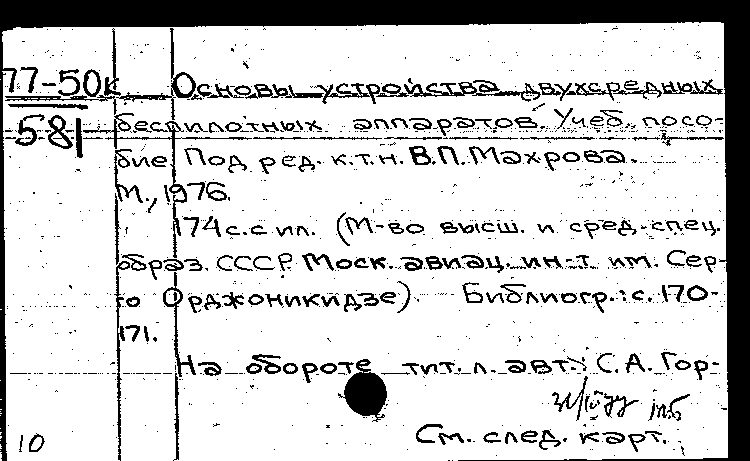 77-50к Основы устройства двухсредных
581 беспилотных аппаратов. Учеб. посо-
бие. Под ред. к.т.н. В.П. Махрова.
М., 1976.
174 с. с ил. (М-во высш. и сред. спец.
образ. СССР. Моск. авиац. ин-т им. Сер-
го Орджоникидзе). Библиогр.: с. 170-
171.
На обороте тит. л. авт.: С.А. Гор-
См. след. карт.
10